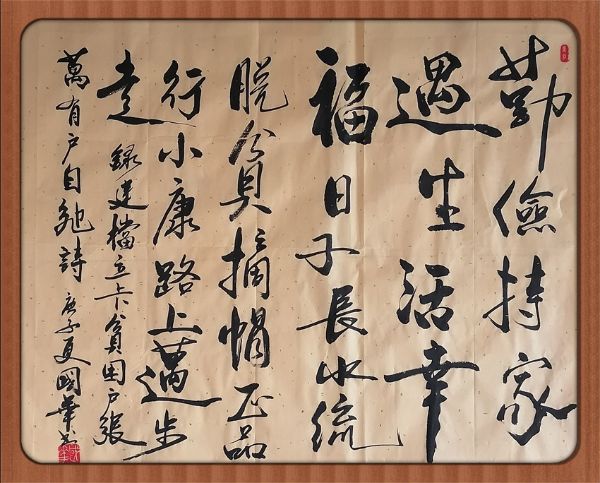 勤儉持家
遇生活幸
福日子長水流
脱貧摘帽正品
行小康路上邁步
走 錄建檔立卡貧困户張
萬有户自勉詩 庚子夏國華书